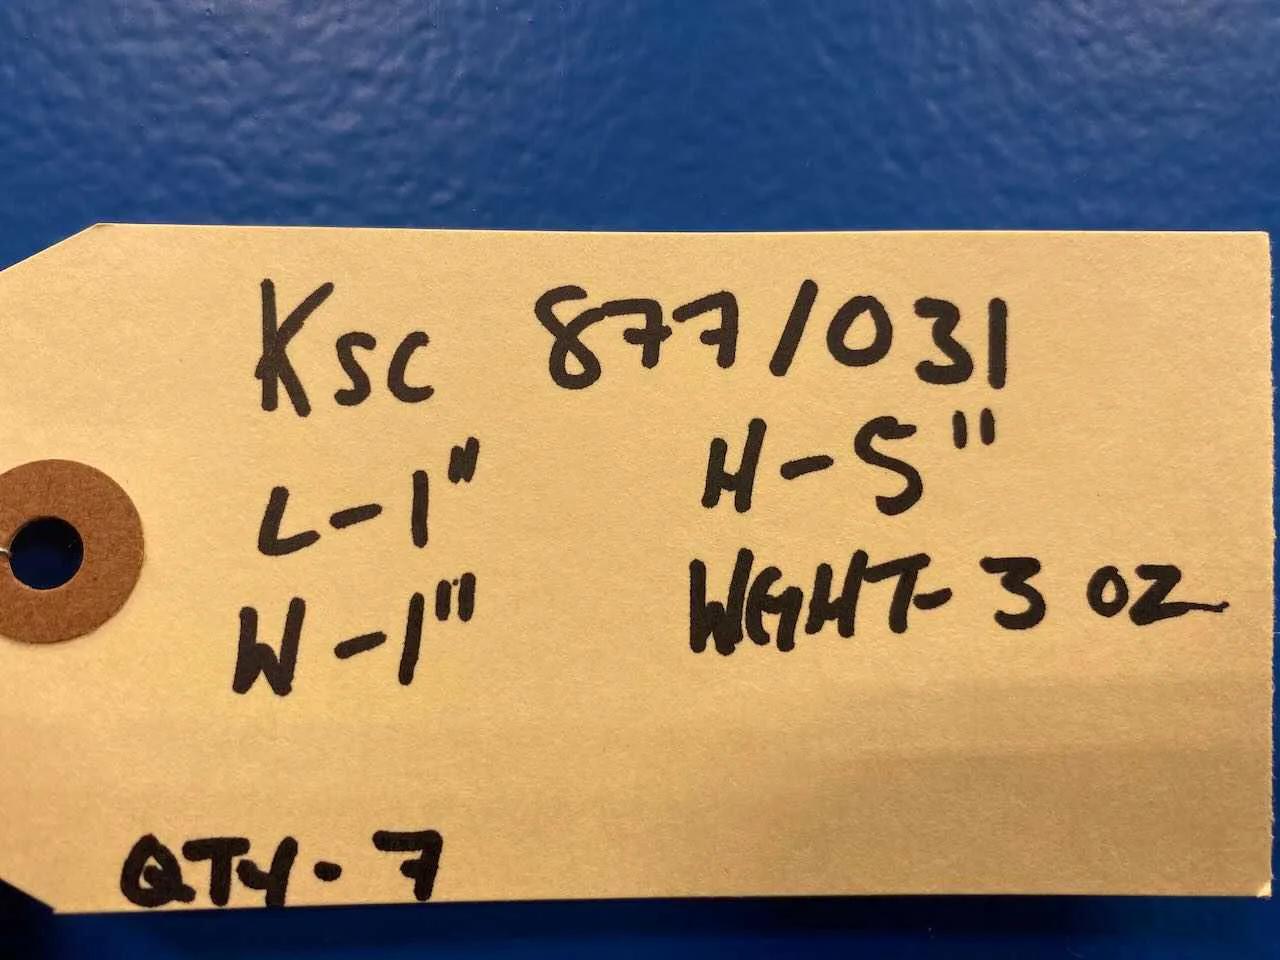 Ksc 877/031
L-1" H-5"
W-1" WGHT-3 OZ
QTY-7